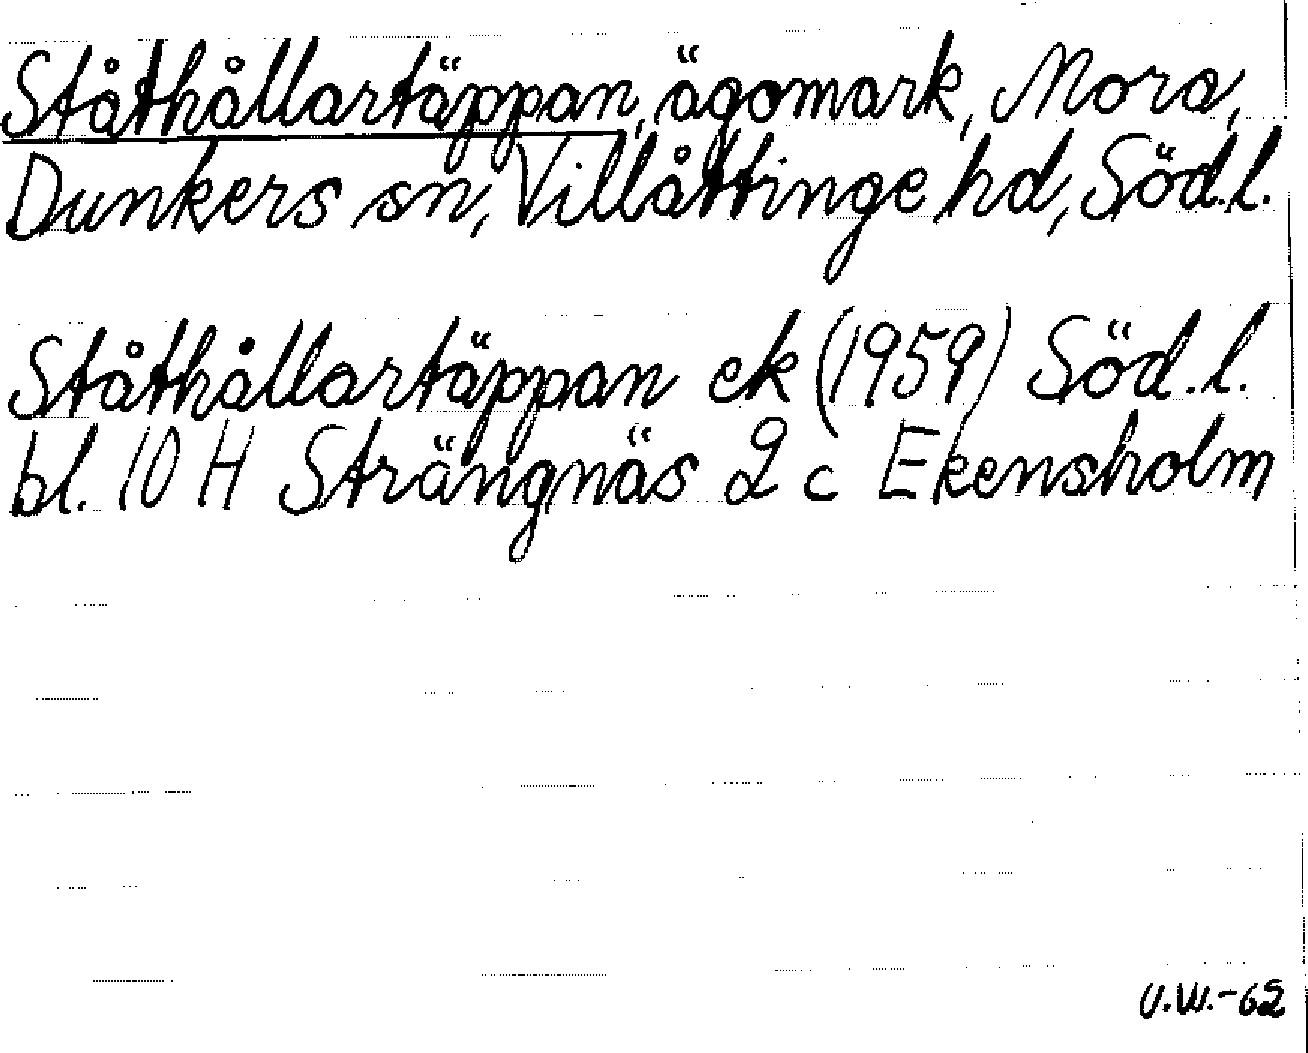 Ståthållartäppan, ägomark, Mora,
Dunkers sn, Villåttinge hd, Söd.l.
Ståthållartäppan ek (1959) Söd.l.
bl. 10 H Strängnäs 2 c Ekensholm
U.W.-62